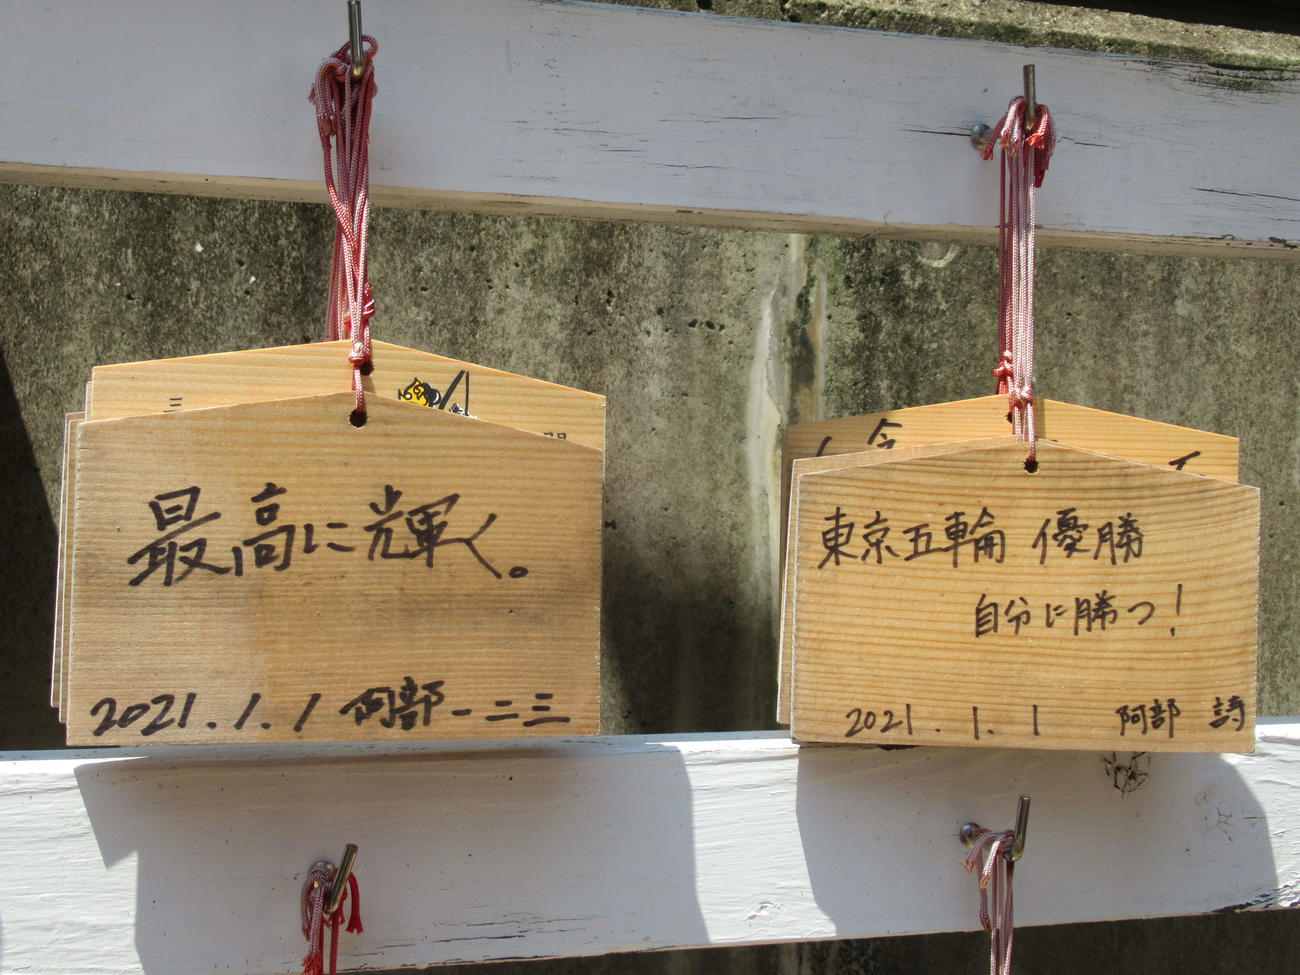 最高に輝く。
2021.1.1 阿部一二三
東京五輪 優勝
自分に勝つ!
2021.1.1 阿部 詩
三
今